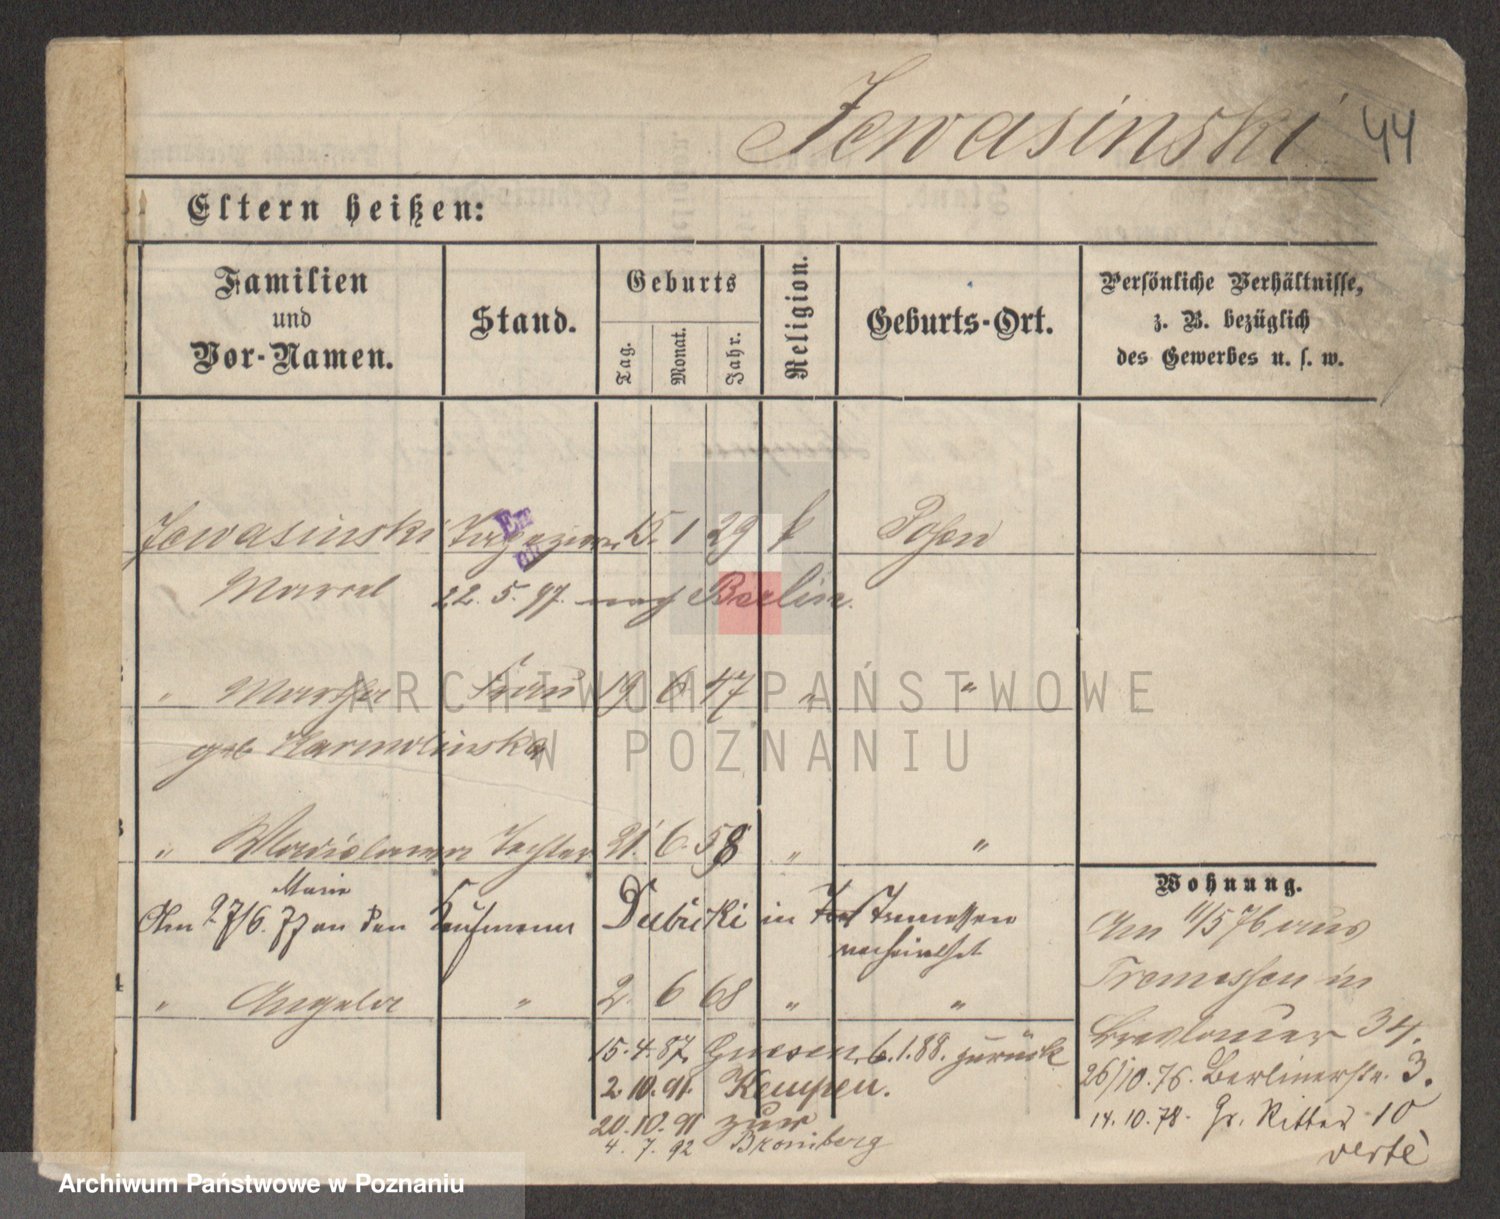 Jewasinski 44
Eltern heißen:
Familien
und
Vor-Namen.
Stand.
Geburts
Tag.
Monat.
Jahr.
Religion.
Geburts-Ort.
Persönliche Verhältnisse,
z. B. bezüglich
des Gewerbes u. s. w.
Jewasinski 15. 1 29 k Posen
Marcel 22. 5. 97. nach Berlin.
" Martha Frau 19 6 47 " "
geb Karmolinska
ARCHIWUM PAŃSTWOWE
W POZNANIU
3 " Wladislawa Tochter 21. 6. 58 " "
Marie
Am 27/6. 77 an den Kaufmann Dubicki in Tremessen
verheirathet
4 " Angela " 2. 6 68 " "
15. 4. 87. Gnesen. 6. 1. 88. zurück
2. 10. 91. Kempen.
20. 10. 91 zur
4. 7. 92 Bromberg
Wohnung.
Am 11/5 76 aus
Tremessen in
Breslauer 34.
26/10. 76. Berlinerstr. 3.
14. 10. 78. Gr. Ritter 10
verte
Archiwum Państwowe w Poznaniu